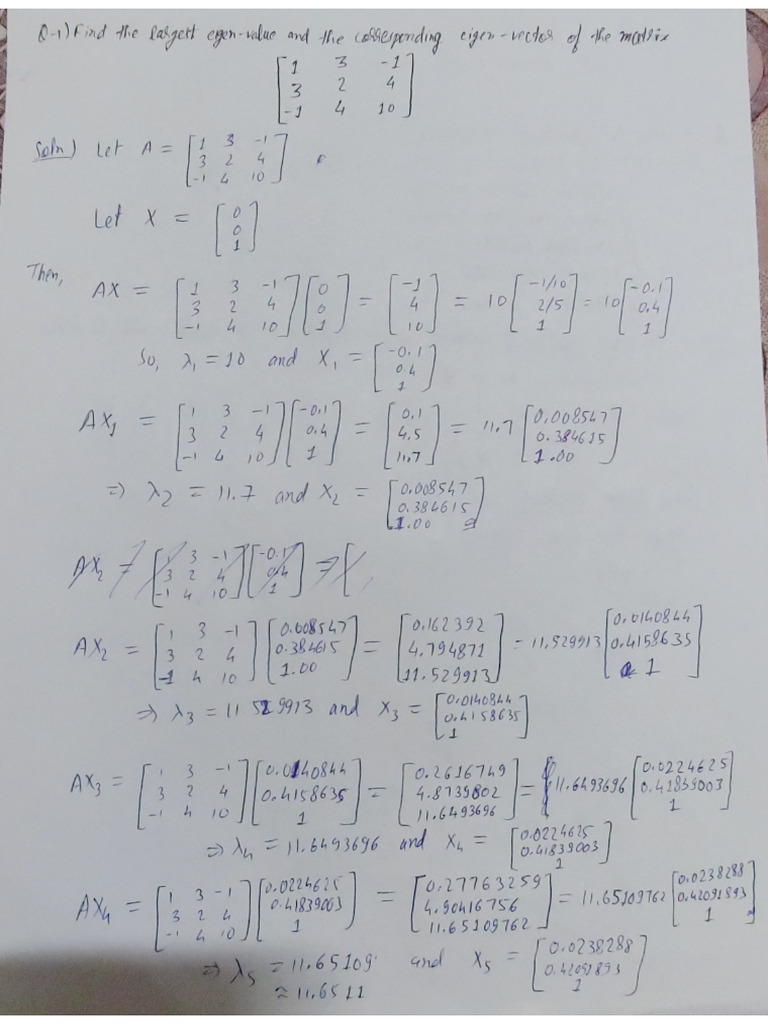 Q-1) Find the largest egen-value and the corresponding eigen-vector of the matrix
[1 3 -1
3 2 4
-1 4 10]
Soln) Let A = [1 3 -1
3 2 4
-1 4 10]
Let X = [0
0
1]
Then,
AX = [1 3 -1; 3 2 4; -1 4 10] [0; 0; 1] = [-1; 4; 10] = 10 [-1/10; 2/5; 1] = 10 [-0.1; 0.4; 1]
So, λ1 = 10 and X1 = [-0.1; 0.4; 1]
AX1 = [1 3 -1; 3 2 4; -1 4 10] [-0.1; 0.4; 1] = [0.1; 4.5; 11.7] = 11.7 [0.008547; 0.384615; 1.00]
⇒ λ2 = 11.7 and X2 = [0.008547; 0.384615; 1.00]
AX2 = [1 3 -1; 3 2 4; -1 4 10] [-0.1; 0.4; 1] = [
AX2 = [1 3 -1; 3 2 4; -1 4 10] [0.008547; 0.384615; 1.00] = [0.162392; 4.794871; 11.529913] = 11.529913 [0.0140844; 0.4158635; 1]
⇒ λ3 = 11.529913 and X3 = [0.0140844; 0.4158635; 1]
AX3 = [1 3 -1; 3 2 4; -1 4 10] [0.0140844; 0.4158635; 1] = [0.2616749; 4.8739802; 11.6493696] = 11.6493696 [0.0224625; 0.41839003; 1]
⇒ λ4 = 11.6493696 and X4 = [0.0224625; 0.41839003; 1]
AX4 = [1 3 -1; 3 2 4; -1 4 10] [0.0224625; 0.41839003; 1] = [0.27763259; 4.90416756; 11.65109762] = 11.65109762 [0.0238288; 0.42091893; 1]
⇒ λ5 = 11.65109 and X5 = [0.0238288; 0.42091893; 1]
≈ 11.6511